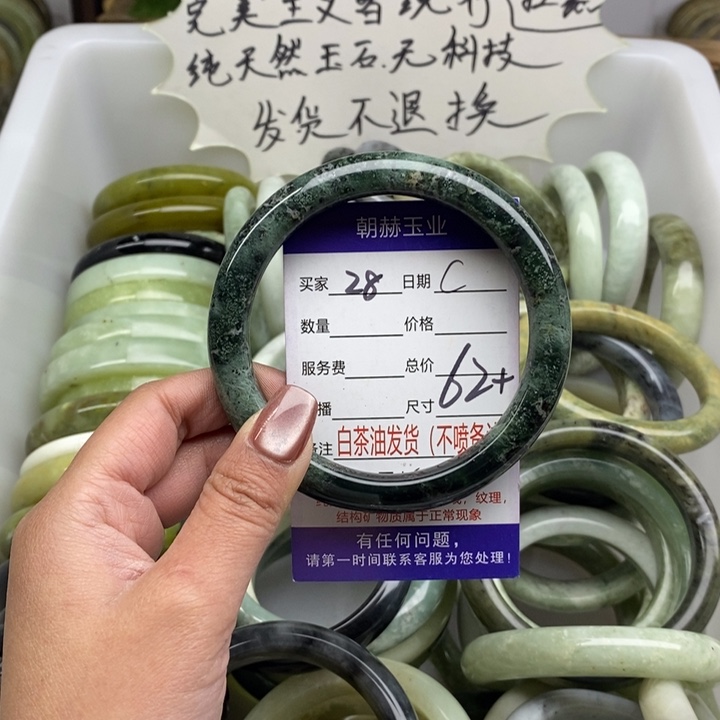 完美主义者绕行
纯天然玉石.无科技
发货不退换
朝赫玉业
买家 28 日期 C
数量 价格
服务费 总价
播 尺寸 62+
备注 白茶油发货（不喷
纹理，
结构矿物质属于正常现象
有任何问题，
请第一时间联系客服为您处理！